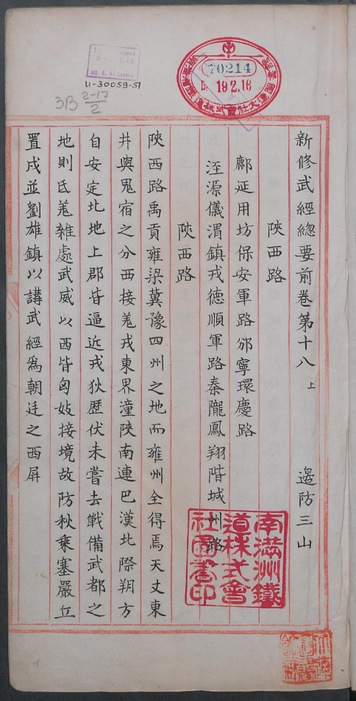 新修武經總要前卷第十八 上 邉防三山
陝西路
鄜延用坊保安軍路邠寧環慶路
涇源儀渭鎮戎德順軍路秦隴鳳翔階城州路
陝西路
陝西路禹貢雍梁冀豫四州之地而雍州全得焉天文東
井輿鬼宿之分西接羗戎東界潼陝南連巴漢北際朔方
自安定北地上郡皆逼近戎狄歷伏未嘗去戰備武都之
地則氐羗雜處武威以西皆匈奴接境故防秋乘塞嚴丘
置戍並劉雄鎮以講武經爲朝廷之西屏
70214
19 2. 16
U-30059-51
3B 2-17
2
南滿洲鐵
道株式會
社圖書印